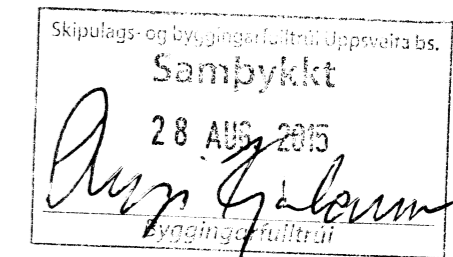 Skipulags- og byggingarfulltrúi Uppsveita bs.
Samþykkt
28 AUG. 2015
Byggingarfulltrúi